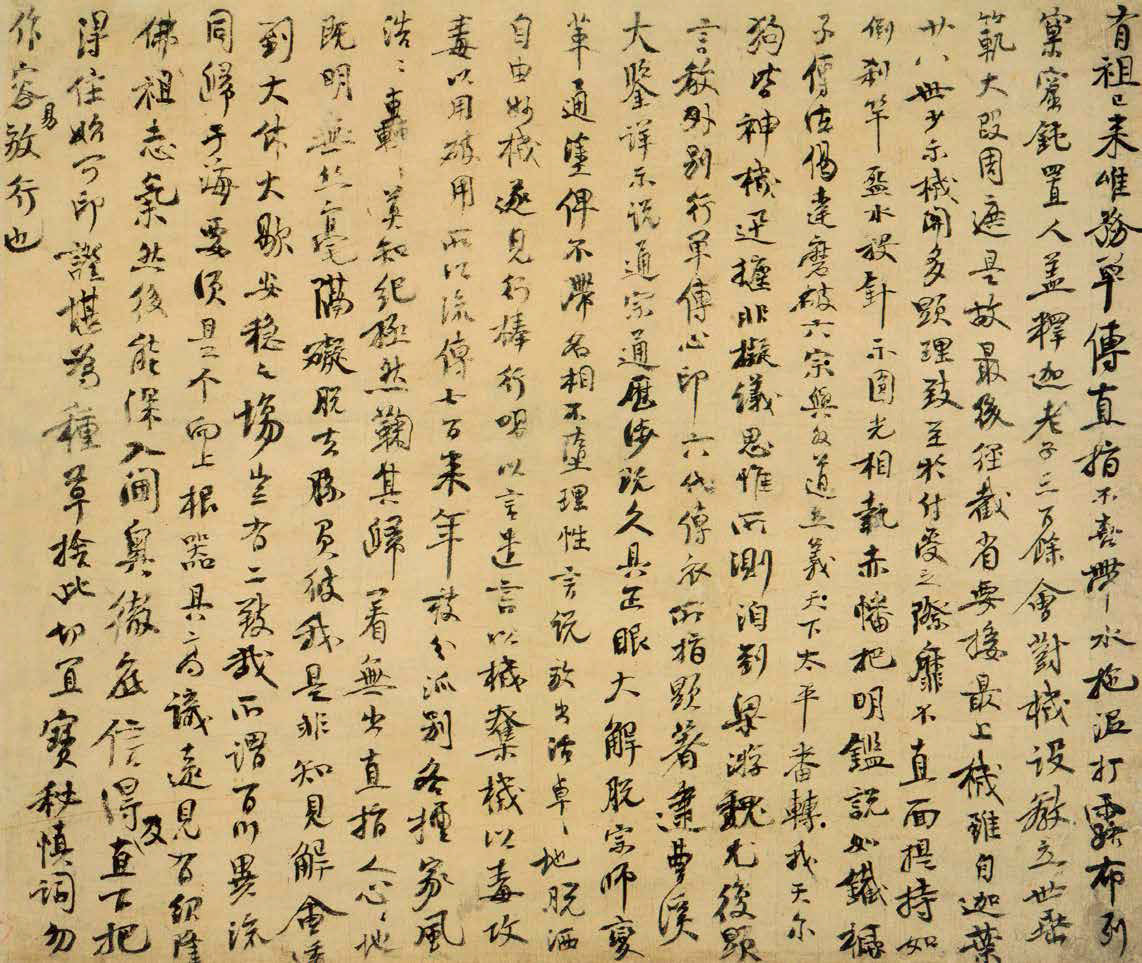 有祖已来唯務単傳直指不喜帶水拖泥打露布列
窠窟鈍置人盖釋迦老子三百餘會對機設教立世垂
範大段周遮是故最後徑截省要接最上機雖自迦葉
廿八世少示機関多顕理致至於付受之際靡不直面提持如
倒刹竿盋水投針示圓光相執赤幡把明鑑説如鐵橛
子傳法偈達磨破六宗與外道立義天下太平番轉我天尓
狗皆神機迅捷非擬議思惟所測洎到梁游魏尤復顕
言教外別行単傳心印六代傳衣所指顕著逮曹溪
大鑒詳示説通宗通歴渉既久具正眼大解脱宗師變
革通塗俾不滯名相不墮理性言説放出活卓〻地脱洒
自由妙機遂見行棒行喝以言遣言以機奪機以毒攻
毒以用破用所以流傳七百来年枝分派別各擅家風
浩〻轟〻莫知紀極然鞠其歸著無出直指人心〻地
既明無絲毫隔礙脱去勝負彼我是非知見解會透
到大休大歇安穏之場豈有二致哉所謂百川異流
同歸于海要須是个向上根器具高識遠見有紹隆
佛祖志氣然後能深入閫奥徹底信得及直下把
得住始可印證堪為種草捨此切宜寳秘慎詞勿
作容易放行也